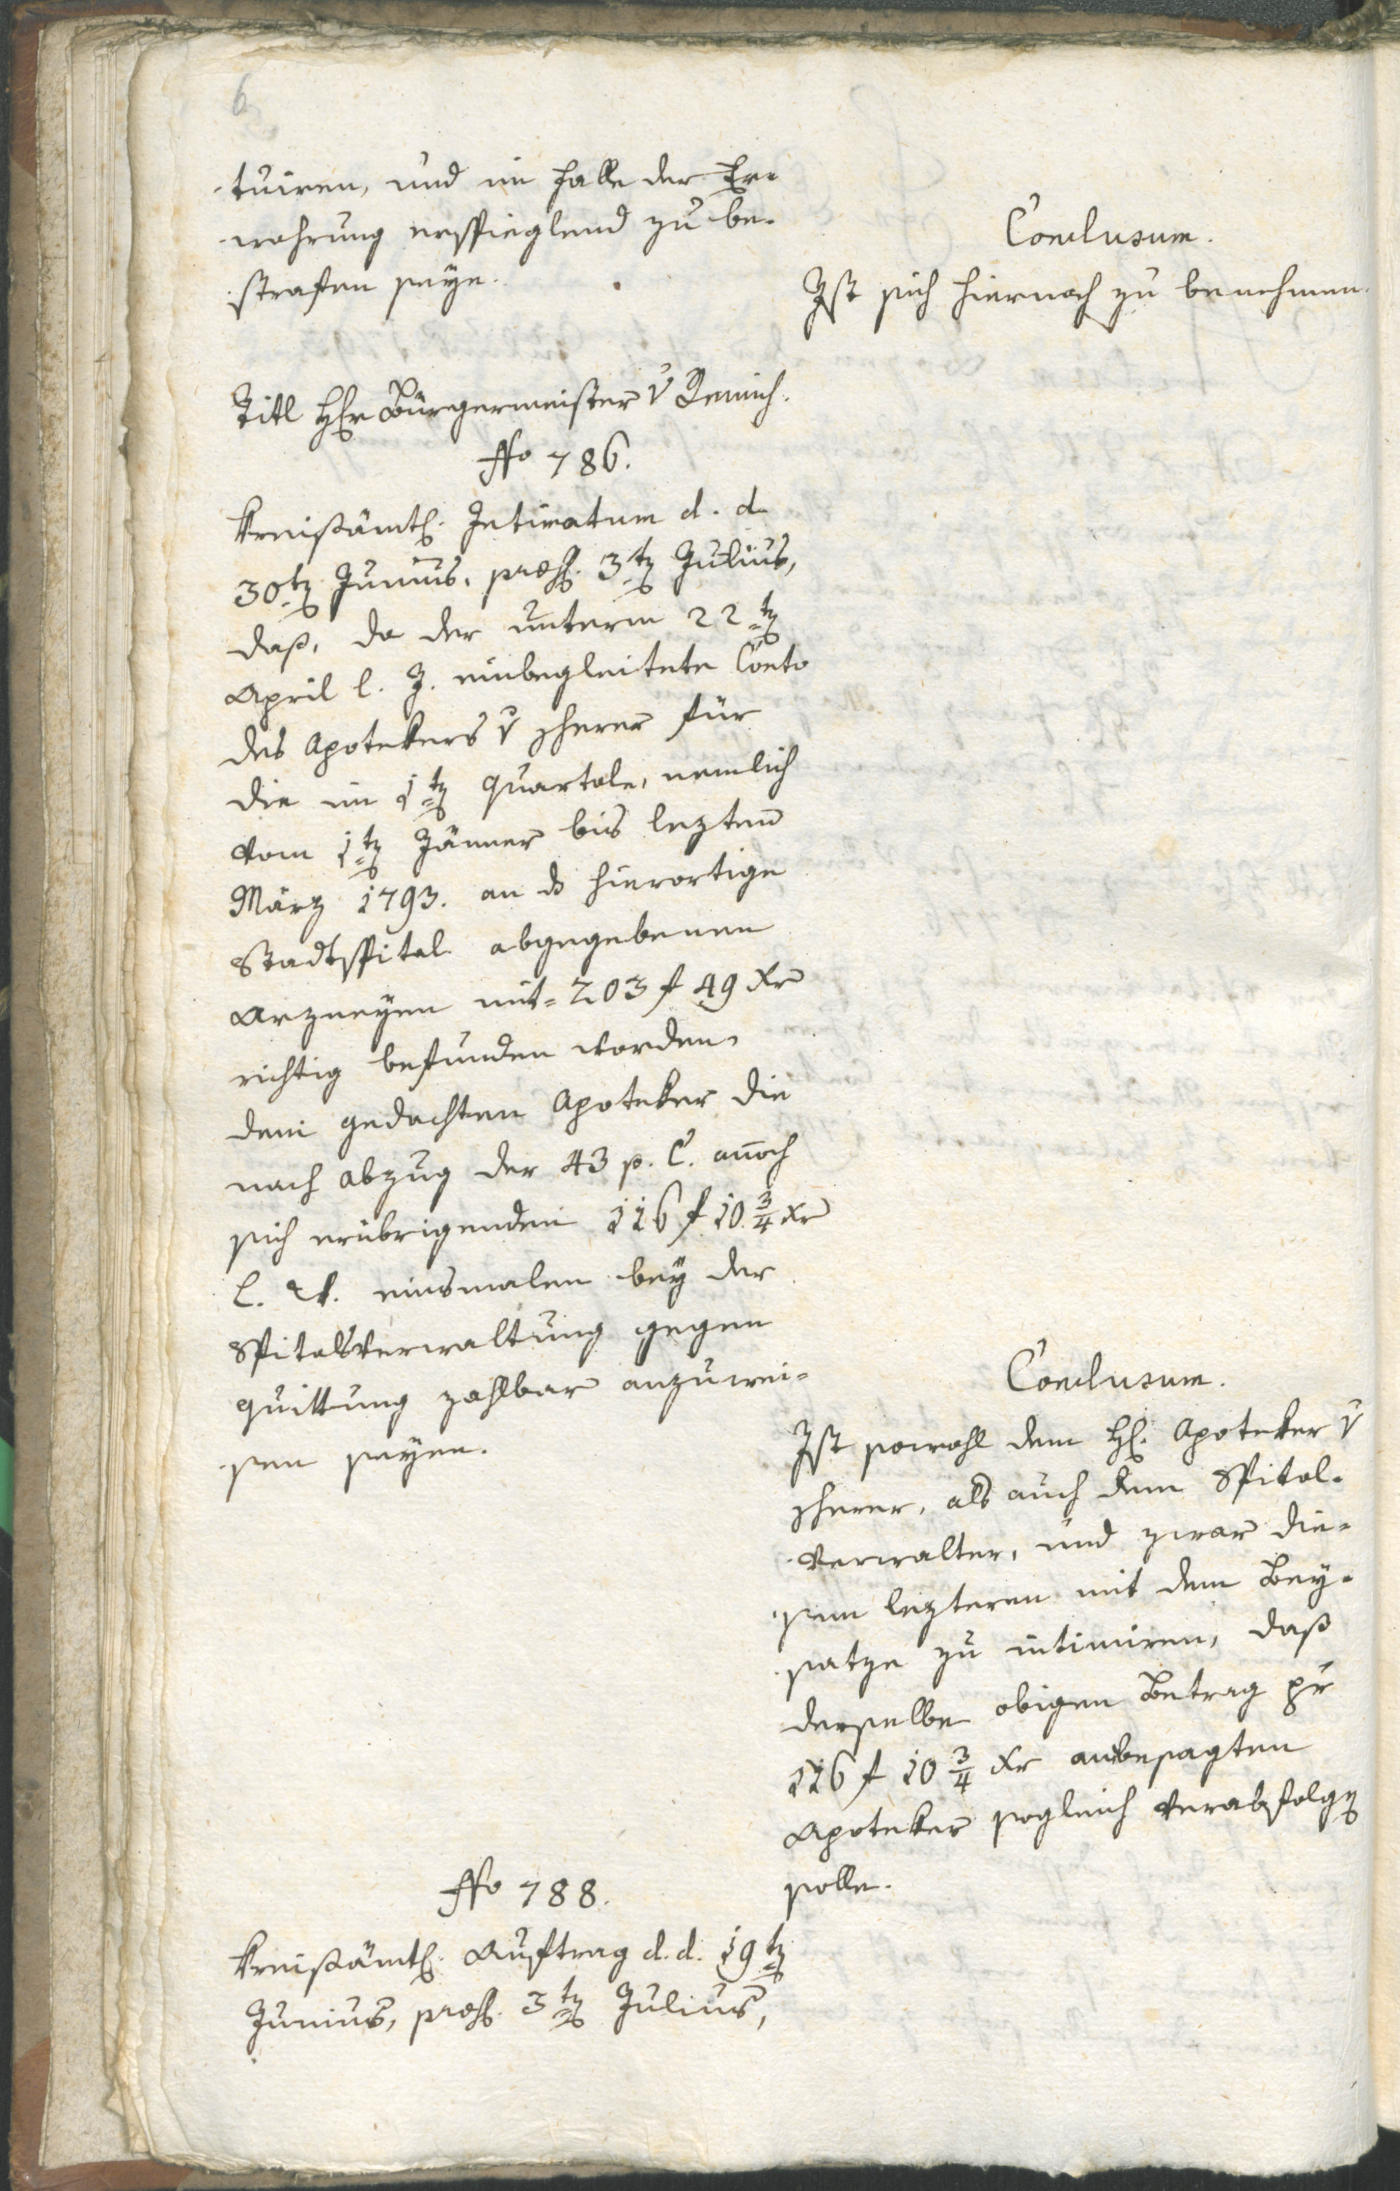 6
tuiren, und im Falle der Er-
wahrung erspieglend zu be-
strafen seye.
Conclusum.
Ist sich hiernach zu benehmen.
Titl Hr Bürgermeister v Remich.
No 786.
Kreißämtl. Intimatum d. d.
30ten Junius, praes. 3ten Julius,
daß, da der unterm 22ten
April l. J. einbegleitete Conto
des Apotekers v Scherer für
die im 1ten Quartale, nemlich
vom 1ten Jänner bis lezten
März 1793. an ds hierortige
Stadtspital abgegebenen
Arzneyen mit 203 f 49 Xr
richtig befunden worden,
dem gedachten Apoteker die
nach Abzug der 43 p. C. annoch
sich erübrigenden 116 f 10 3/4 Xr
einsmalen bey der
Spitalsverwaltung gegen
Quittung zahlbar anzuwei-
sen seyen.
Conclusum.
Ist sowohl dem H. Apoteker v
Scherer, als auch dem Spital-
verwalter, und zwar die-
sem lezteren mit dem Bey-
satze zu intimiren, daß
derselbe obigen Betrag pr
116 f 10 3/4 Xr anbesagten
Apoteker sogleich verabfolgen
solle.
No 788.
Kreißämtl. Auftrag d. d. 19ten
Junius, praes. 3ten Julius,